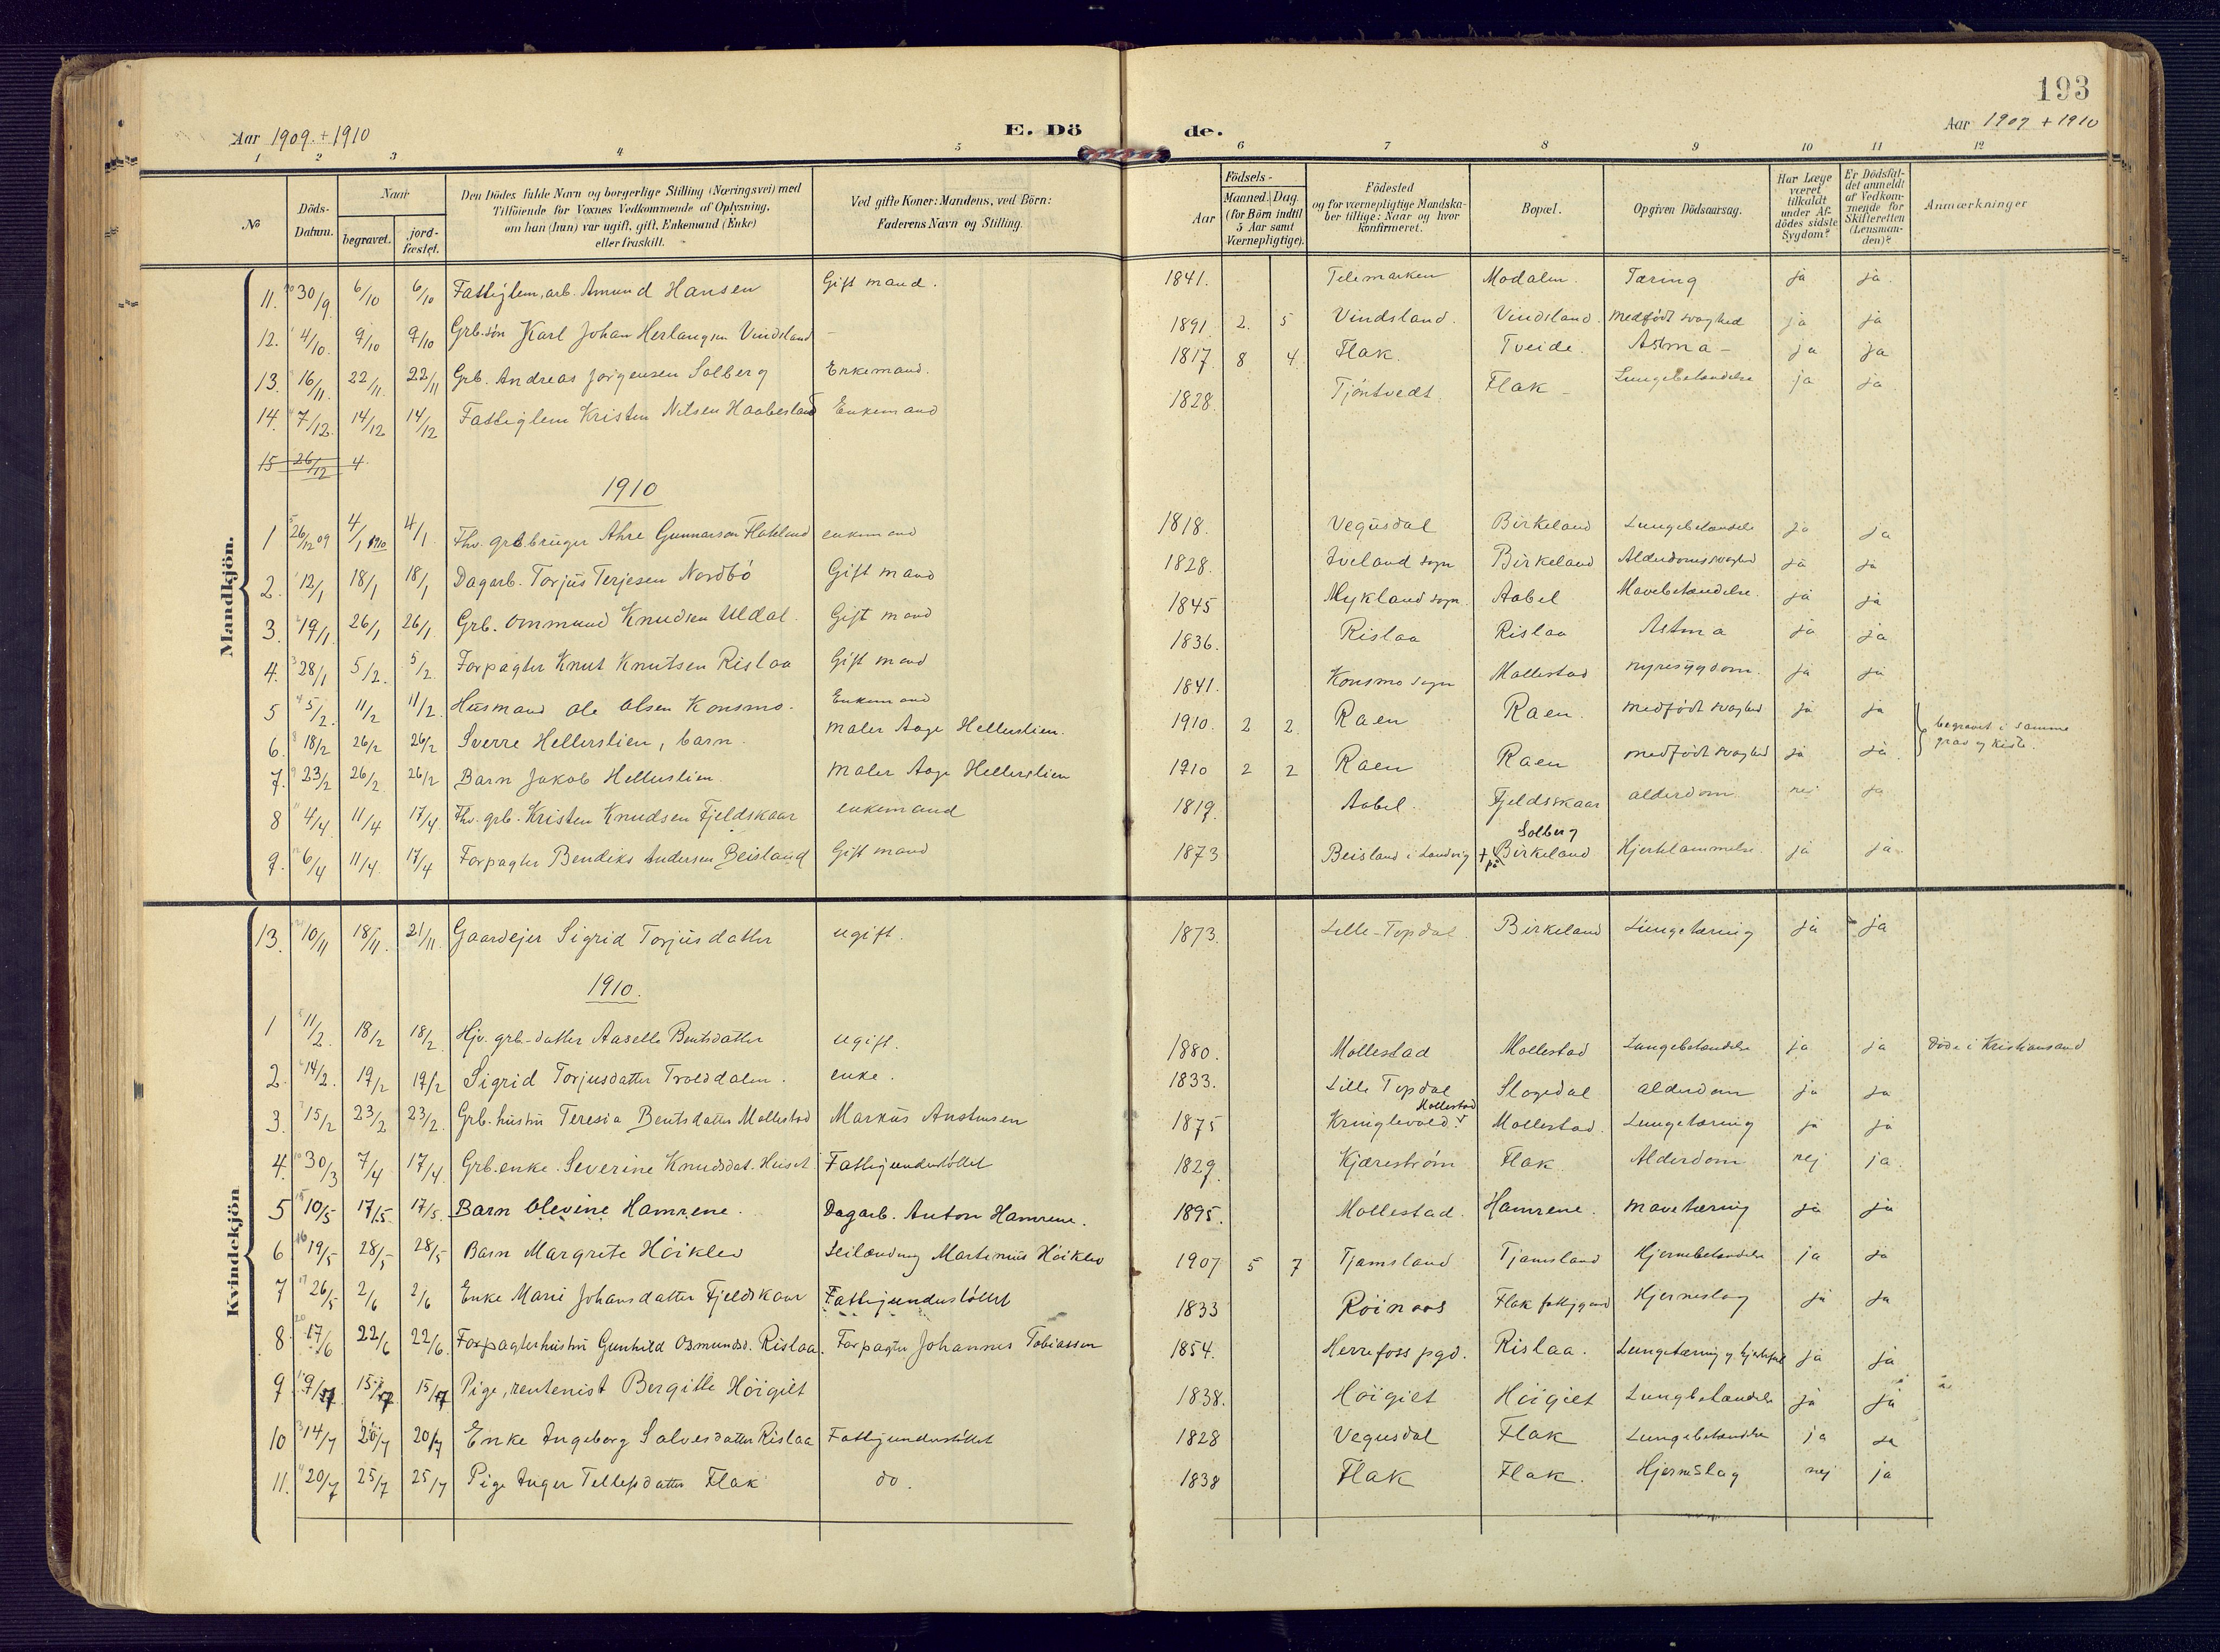 193
Aar 1909 + 1910 E. Dö de. Aar 1909 + 1910
1 2 3 4 5 6 7 8 9 10 11 12
No Döds-Datum. Naar begravet. jord-fæstet. Den Dödes fulde Navn og borgerlige Stilling (Næringsvei) med Tilföiende for Voxnes Vedkommende af Oplysning, om han (hun) var ugift, gift, Enkemand (Enke) eller fraskilt. Ved gifte Koner: Mandens, ved Börn: Faderens Navn og Stilling. Födsels- Aar Maaned. Dag. (for Börn indtil 5 Aar samt Værnepligtige). Födested og for værnepligtige Mandskaber tillige: Naar og hvor konfirmeret. Bopæl. Opgiven Dödsaarsag. Har Læge været tilkaldt under Afdödes sidste Sygdom? Er Dödsfaldet anmeldt af Vedkommende for Skifteretten (Lensmanden)? Anmærkninger
Mandkjön.
11. 30/9 6/10 6/10 Fattiglem, arb. Amund Hansen Gift mand. 1841. Telemarken Modalen. Tæring ja ja.
12. 4/10. 9/10 9/10 Grb.søn Karl Johan Herlaugsen Vindsland – 1891 2. 5 Vindsland. Vindsland. Medfødt svaghed ja ja
13. 16/11. 22/11. 22/11 Grb. Andreas Jørgensen Solberg Enkemand. 1817 8 4 Flak. Tveide. Astma – ja ja
14. 7/12. 14/12 14/12 Fattiglem Kristen Nilsen Haabesland Enkemand 1828. Tjøntvedt. Flak – Lungebetændelse ja ja.
15 26/12 4.
1910
1 26/12 09 4/1 1910 4/1. Fhv. grb.bruger Ahre Gunnarson Flateland enkemand 1818. Vegusdal Birkeland Lungebetændelse ja ja
2. 12/1 18/1 18/1 Dagarb. Torjus Terjesen Nordbø Gift mand 1828. Iveland sogn Birkeland Alderdomssvaghed ja ja
3. 19/1. 26/1 26/1. Grb. Ommund Knudsen Uldal. Gift mand 1845 Mykland sogn. Aabel Mavebetændelse. ja ja
4. 28/1 5/2. 5/2. Forpagter Knut Knutsen Rislaa Gift mand 1836. Rislaa Rislaa Astma ja ja
5 5/2. 11/2 11/2. Husmand Ole Olsen Konsmo. Enkemand 1841. Konsmo sogn Mollestad nyresygdom. ja ja
6. 18/2 26/2 26/2 Sverre Hellerslien, barn. Maler Aage Hellerslien. 1910. 2 2. Raen Raen. medfødt svaghed ja ja begravet i samme grav og kiste.
7. 23/2 26/2 26/2 Barn Jakob Hellerslien. Maler Aage Hellerslien 1910 2 2 Raen Raen medfødt svaghed ja ja
8 4/4 11/4 17/4 Fhv. grb. Kristen Knudsen Fjeldskaar enkemand 1819. Aabel. Fjeldsskaar alderdom nej ja
9. 6/4 11/4. 17/4 Forpagter Bendiks Andersen Beisland Gift mand 1873 Beisland i Landvig + på Solberg Birkeland Hjertelammelse. ja ja
Kvindekjön
13. 10/11 18/11. 21/11. Gaardejer Sigrid Torjusdatter ugift. 1873. Lille-Topdal. Birkeland Lungetæring ja ja
1910.
1 11/2. 18/2 18/2. Hjv. grb-datter Aaselle Bentsdatter ugift. 1880. Mollestad Mollestad Lungebetændelse ja ja døde i Kristiansand
2. 14/2. 19/2 19/2 Sigrid Torjusdatter Trolddalen. enke. 1833. Lille Topdal Slogedal alderdom ja ja
3. 15/2 23/2 23/2. Grb. hustru Teresia Bentsdatter Mollestad Markus Anstensen 1875 Kringlevold. Mollestad Mollestad. Lungetæring ja ja
4. 30/3 7/4 17/4. Grb. enke. Severine Knudsdat. Huset Fattigunderstøttet 1829. Kjærestrøm Flak. Alderdom nej ja.
5 10/5 17/5. 17/5. Barn Olevine Hamrene. Dagarb. Anton Hamrene. 1895. Mollestad. Hamrene. mavetæring ja ja
6 19/5 28/5 28/5 Barn Margrete Høiklev Leilænding Martinius Høiklev 1907 5 7 Tjamsland Tjamsland Hjernebetændelse ja ja
7 26/5 2/6 2/6 Enke Mari Johansdatter Fjeldskaar Fattigunderstøttet 1833 Røinaas Flak fattiggaard Hjerneslag ja ja
8 17/6 22/6 22/6. Forpagterhustru Gunhild Osmundsd. Rislaa. Forpagter Johannes Tobiassen 1854. Herrefoss pgd. Rislaa. Lungetæring og hjertefeil ja ja
9 9/7 15/7 15/7 Pige, rentenist Bergitte Höigilt 1838. Höigilt Höigilt Lungebetændelse ja ja
10 14/7 20/7 20/7 Enke Ingeborg Salvesdatter Rislaa Fattigunderstöttet 1828 Vegusdal Flak Lungebetændelse ja ja
11. 20/7 25/7 25/7 Pige Inger Tellefsdatter Flak do. 1838 Flak Flak. Hjerneslag nej ja